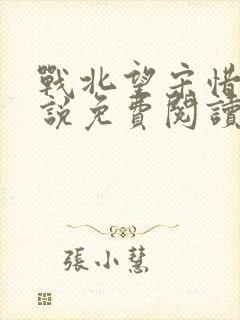 戰北望宋惜
說免費閱讀
張小慧